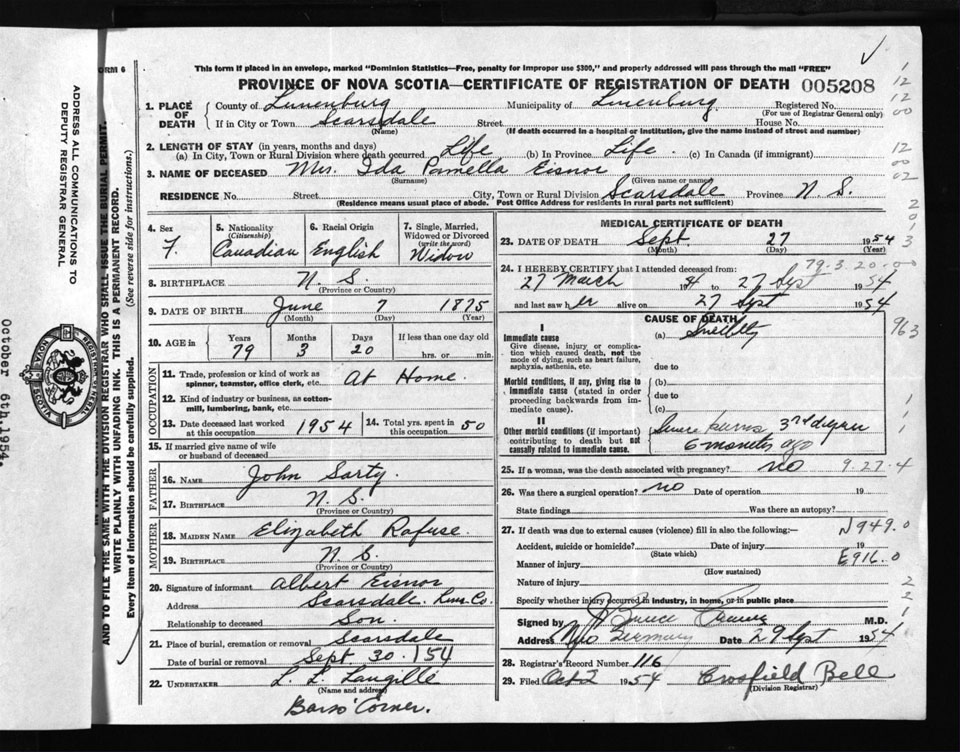 This form if placed in an envelope, marked "Dominion Statistics—Free, penalty for improper use $300," and properly addressed will pass through the mail "FREE"
PROVINCE OF NOVA SCOTIA—CERTIFICATE OF REGISTRATION OF DEATH 005208
1. PLACE OF DEATH County of Lunenburg Municipality of Lunenburg Registered No.
(For use of Registrar General only)
If in City or Town Scarsdale Street House No.
(Name) (If death occurred in a hospital or institution, give the name instead of street and number)
2. LENGTH OF STAY (in years, months and days)
(a) In City, Town or Rural Division where death occurred Life (b) In Province Life. (c) In Canada (if immigrant)
3. NAME OF DECEASED Mrs. Ida Pamella Eisnor
(Surname) (Given name or names)
RESIDENCE No. Street City, Town or Rural Division Scarsdale Province N. S.
(Residence means usual place of abode. Post Office Address for residents in rural parts not sufficient)
4. Sex F.
5. Nationality (Citizenship) Canadian
6. Racial Origin English
7. Single, Married, Widowed or Divorced (write the word) Widow
8. BIRTHPLACE N. S.
(Province or Country)
9. DATE OF BIRTH June 7 1875
(Month) (Day) (Year)
10. AGE in Years Months Days If less than one day old
79 3 20 hrs. or min.
OCCUPATION
11. Trade, profession or kind of work as spinner, teamster, office clerk, etc. At Home.
12. Kind of industry or business, as cotton-mill, lumbering, bank, etc.
13. Date deceased last worked at this occupation 1954
14. Total yrs. spent in this occupation 50
15. If married give name of wife or husband of deceased
FATHER
16. NAME John Sarty.
17. BIRTHPLACE N. S.
(Province or Country)
MOTHER
18. MAIDEN NAME Elizabeth Rafuse.
19. BIRTHPLACE N. S.
(Province or Country)
20. Signature of informant Albert Eisnor
Address Scarsdale. Lun. Co.
Relationship to deceased Son.
21. Place of burial, cremation or removal Scarsdale
Date of burial or removal Sept 30. 154
22. UNDERTAKER L. L. Langille
(Name and address)
Barss' Corner.
MEDICAL CERTIFICATE OF DEATH
23. DATE OF DEATH Sept 27 1954
(Month) (Day) (Year)
79.3 20.00
24. I HEREBY CERTIFY that I attended deceased from:
27 March to 27 Sept 1954
and last saw her alive on 27 Sept 1954
CAUSE OF DEATH
I
Immediate cause (a)
Give disease, injury or complication which caused death, not the mode of dying, such as heart failure, asphyxia, asthenia, etc.
due to
Morbid conditions, if any, giving rise to immediate cause (stated in order proceeding backwards from immediate cause).
(b)
due to
(c)
II
Other morbid conditions (if important) contributing to death but not causally related to immediate cause.
Severe burns 3rd degree
6 months ago
963
25. If a woman, was the death associated with pregnancy? no 9.27.4
26. Was there a surgical operation? no Date of operation 19
State findings Was there an autopsy?
27. If death was due to external causes (violence) fill in also the following:—
N949.0
Accident, suicide or homicide? Date of injury 19
(State which)
Manner of injury E916.0
(How sustained)
Nature of injury
Specify whether injury occurred in industry, in home, or in public place
Signed by M.D.
Address New Germany Date 29 Sept 1954
28. Registrar's Record Number 116
29. Filed Oct 2 1954 Crossfield Bell
(Division Registrar)
ADDRESS ALL COMMUNICATIONS TO
DEPUTY REGISTRAR GENERAL
REGISTRAR GENERAL
NOVA SCOTIA
October 6th, 1954.
AND TO FILE THE SAME WITH THE DIVISION REGISTRAR WHO SHALL ISSUE THE BURIAL PERMIT.
WRITE PLAINLY WITH UNFADING INK. THIS IS A PERMANENT RECORD.
Every item of information should be carefully supplied. (See reverse side for instructions.)